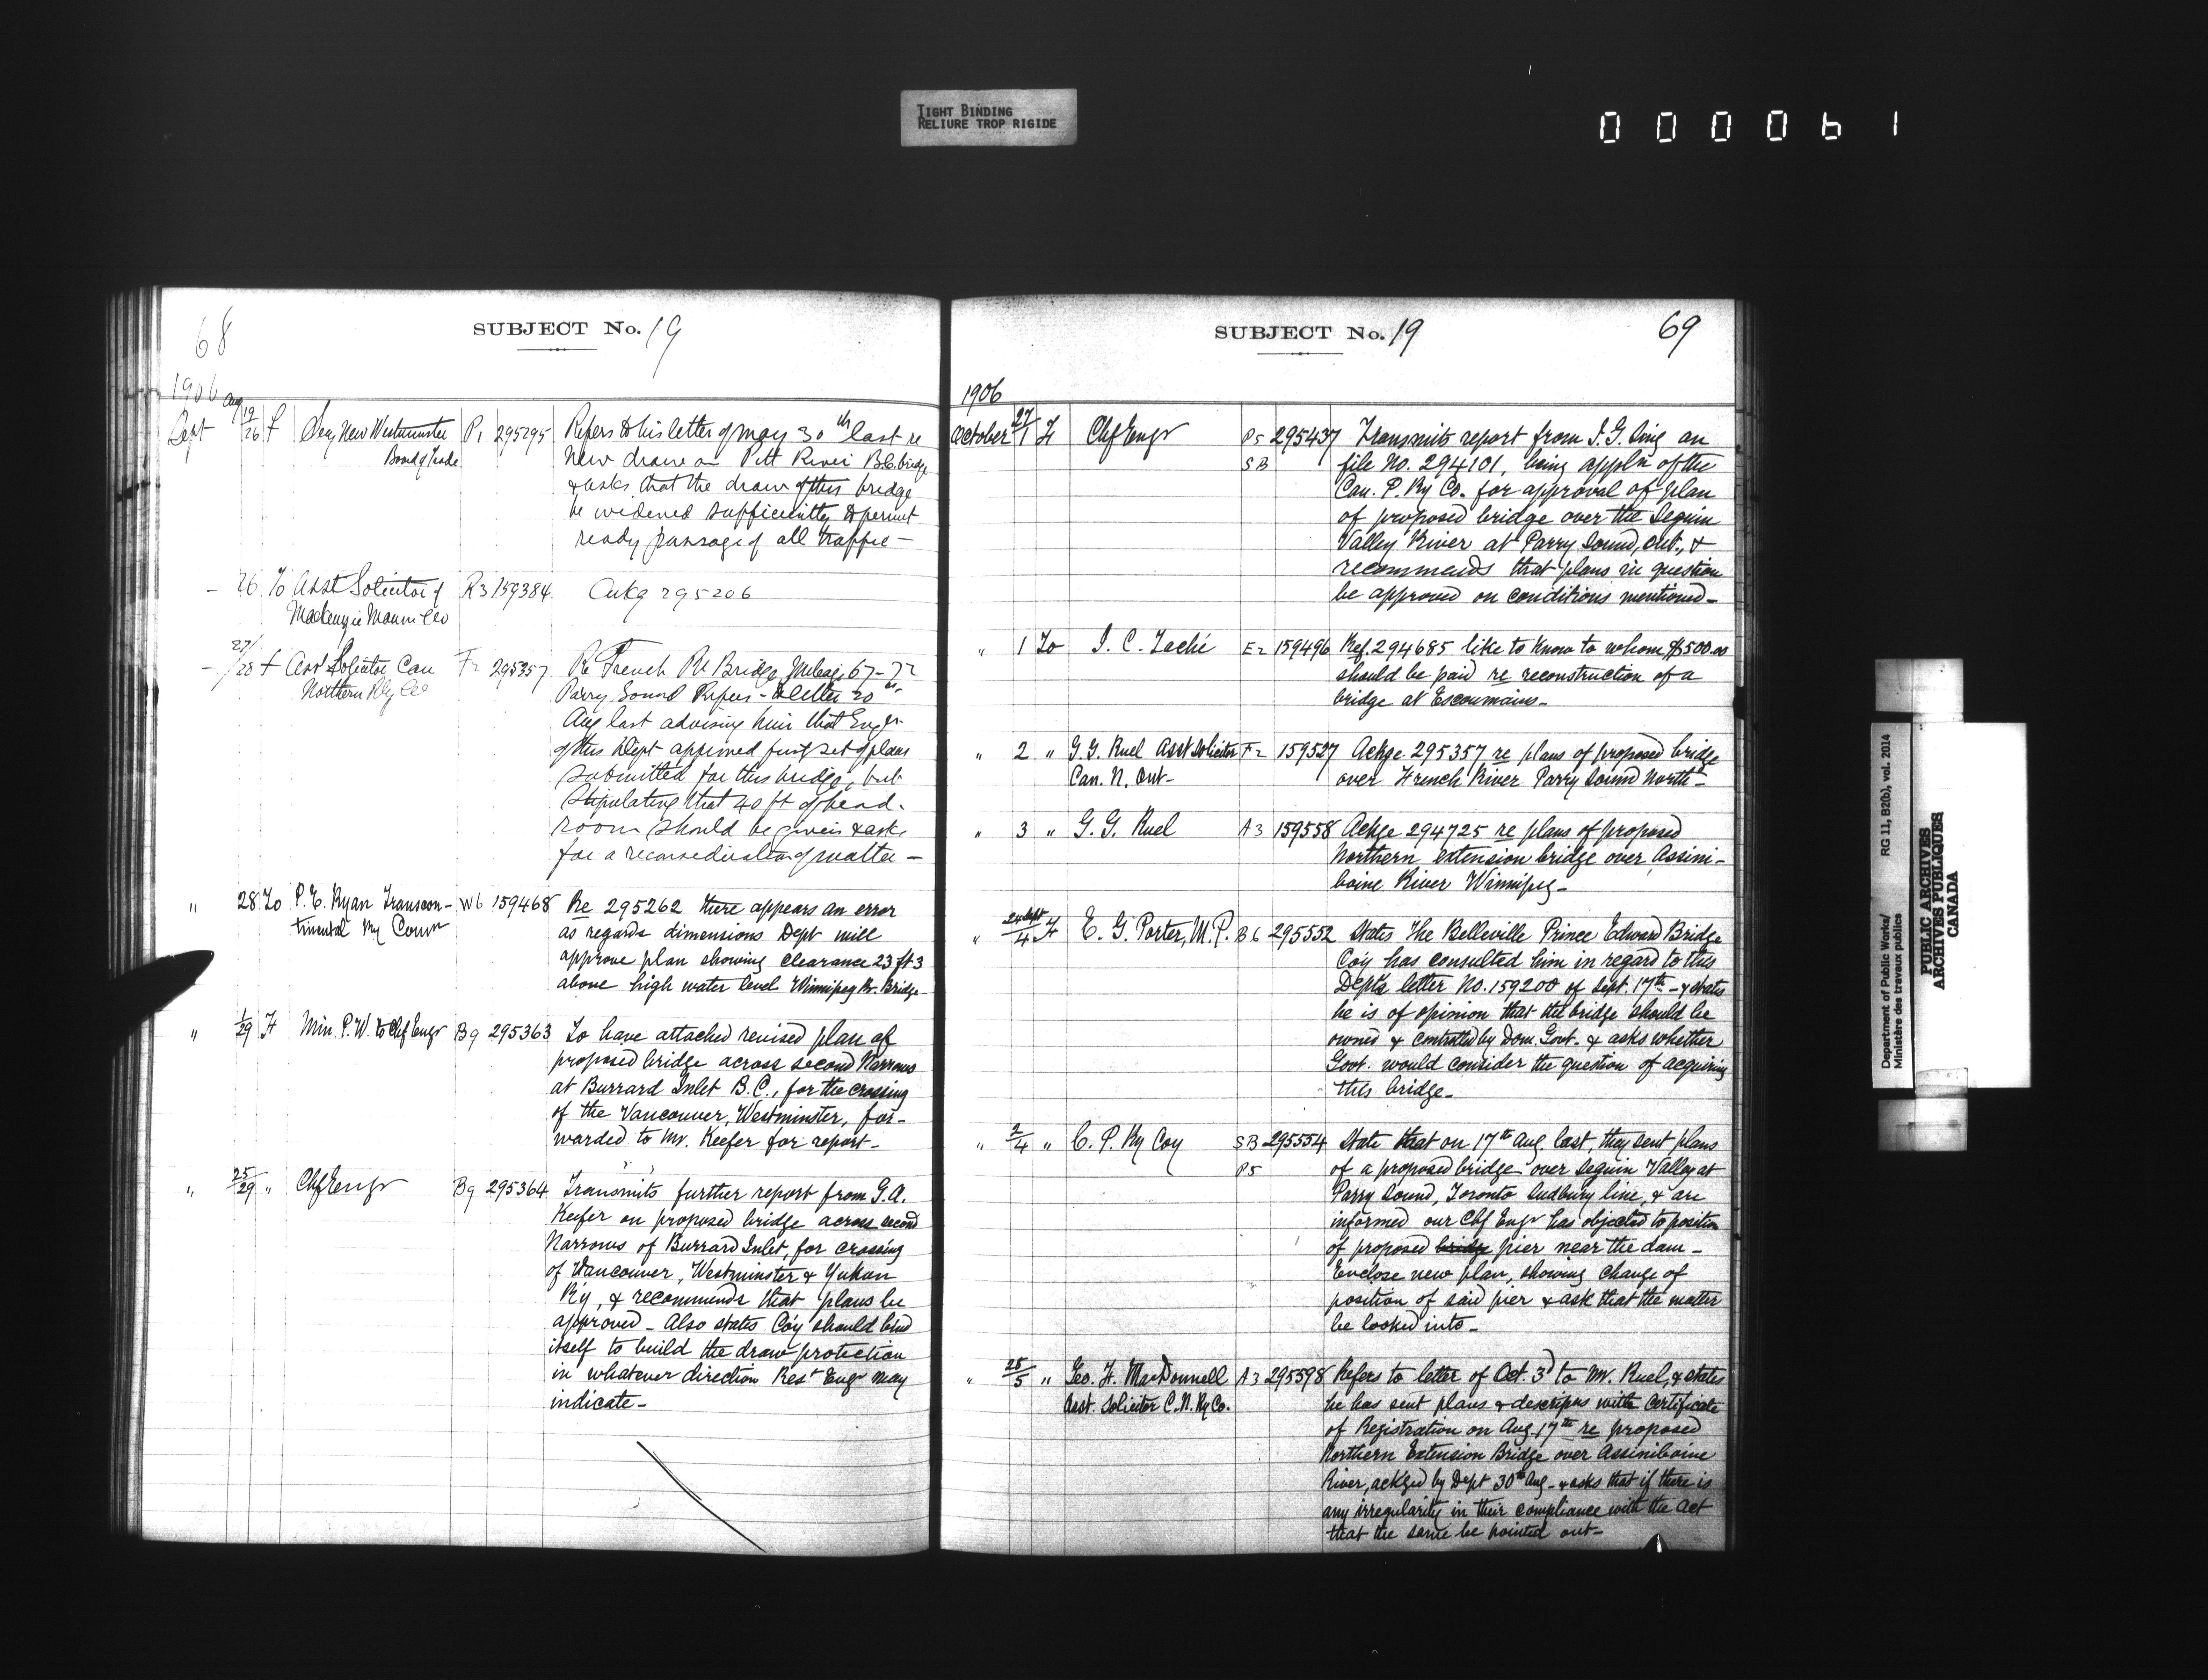 TIGHT BINDING
RELIURE TROP RIGIDE
0 0 0 0 6 1
68
SUBJECT No. 19
1906 Aug
Sept 19/26 f Secy New Westminster P1 295295 Refers to his letter of May 30th last re
Board of Trade New draw on Pitt River B.C. bridge
& asks that the draw of this bridge
be widened sufficiently to permit
ready passage of all traffic —
— 26 To Asst Solicitor of R3 159384 Ackg 295206
Mackenzie Mann & Co
— 27/28 f Asst Solicitor Can F2 295357 Re French Rv Bridge Mileage 67-72
Northern Rly Co Parry Sound Refers - to letter 20th
Aug last advising him that Engr
of this Dept approved first set of plans
submitted for this bridge, but
stipulating that 40 ft of head-
room should be given & asks
for a reconsideration of matter —
" 28 To P. E. Ryan Transcon- W6 159468 Re 295262 there appears an error
tinental Ry Comn as regards dimensions Dept will
approve plan showing clearance 23 ft 3
above high water level Winnipeg Rr. Bridge-
" 1/29 F Min. P.W. to Chf Engr B9 295363 To have attached revised plan of
proposed bridge across second Narrows
at Burrard Inlet B.C., for the crossing
of the Vancouver, Westminster, for-
warded to Mr. Keefer for report-
" 25/29 " Chf Engr B9 295364 Transmits further report from G.A.
Keefer on proposed bridge across second
Narrows of Burrard Inlet, for crossing
of Vancouver, Westminster & Yukon
Ry, & recommends that plans be
approved - Also states Coy should bind
itself to build the draw protection
in whatever direction Rest Engr may
indicate-
SUBJECT No. 19
69
1906
October 27/1 F Chf Engr P5 295437 Transmits report from J.G. Sing on
SB file No. 294101, being appln of the
Can. P. Ry Co. for approval of plan
of proposed bridge over the Seguin
Valley River at Parry Sound, Ont., &
recommends that plans in question
be approved on conditions mentioned-
" 1 To J. C. Taché E2 159496 Ref. 294685 like to know to whom $500.00
should be paid re reconstruction of a
bridge at Escoumains-
" 2 " G.G. Ruel Asst Solicitor F2 159527 Ackge 295357 re plans of proposed bridge
Can. N. Ont- over French River Parry Sound North-
" 3 " G. G. Ruel A3 159558 Ackge 294725 re plans of proposed
Northern extension bridge over Assini-
boine River Winnipeg-
" 24 Sept/4 F E. G. Porter, M.P. B6 295552 States The Belleville Prince Edward Bridge
Coy has consulted him in regard to this
Dept's letter No. 159200 of Sept. 17th - & states
he is of opinion that the bridge should be
owned & controlled by Dom. Govt. & asks whether
Govt. would consider the question of acquiring
this bridge-
" 2/4 " C. P. Ry Coy SB 295554 State that on 17th Aug. last, they sent plans
P5 of a proposed bridge over Seguin Valley at
Parry Sound, Toronto Sudbury line, & are
informed our Chf Engr has objected to position
of proposed bridge pier near the dam -
Enclose new plan, showing change of
position of said pier & ask that the matter
be looked into-
" 25/5 " Geo. F. MacDonnell A3 295598 Refers to letter of Oct. 3d to Mr. Ruel, & states
Asst. Solicitor C.N. Ry Co. he has sent plans & descripns with Certificate
of Registration on Aug. 17th re proposed
Northern Extension Bridge over Assiniboine
River, ackged by Dept 30th Aug - & asks that if there is
any irregularity in their compliance with the Act
that the same be pointed out-
Department of Public Works/ RG 11, B2(b), vol. 2014
Ministère des travaux publics
PUBLIC ARCHIVES
ARCHIVES PUBLIQUES
CANADA